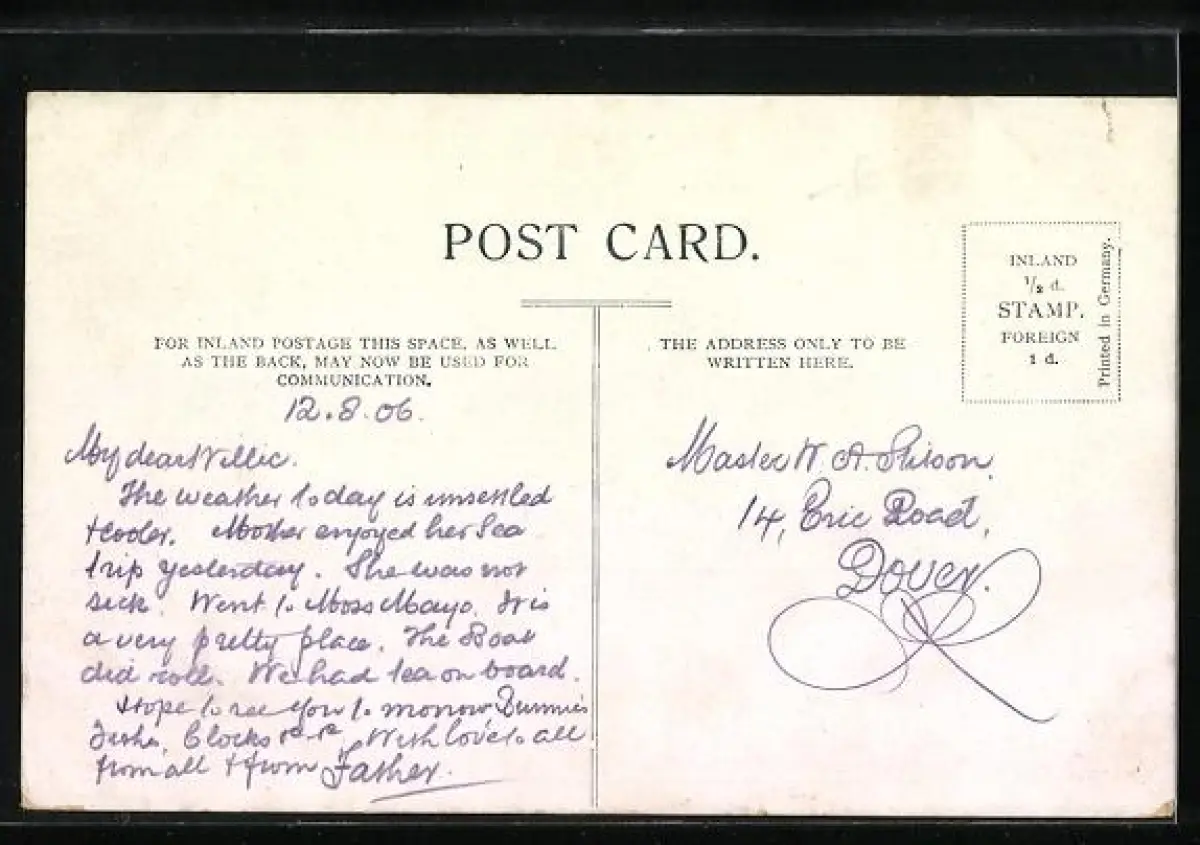 POST CARD.
FOR INLAND POSTAGE THIS SPACE, AS WELL
AS THE BACK, MAY NOW BE USED FOR
COMMUNICATION.
12.8.06.
My dear Willie.
The weather to day is unsettled
& cooler. Mother enjoyed her Sea
trip yesterday. She was not
sick. Went to Moss Mayo. It is
a very pretty place. The Boat
did roll. We had tea on board.
Hope to see you to morrow
Clocks With love to all
from all & from Father.
THE ADDRESS ONLY TO BE
WRITTEN HERE.
INLAND
1/2 d.
STAMP.
FOREIGN
1 d.
Printed in Germany.
Master W. A. Stitson.
14, Eric Road,
Dover.